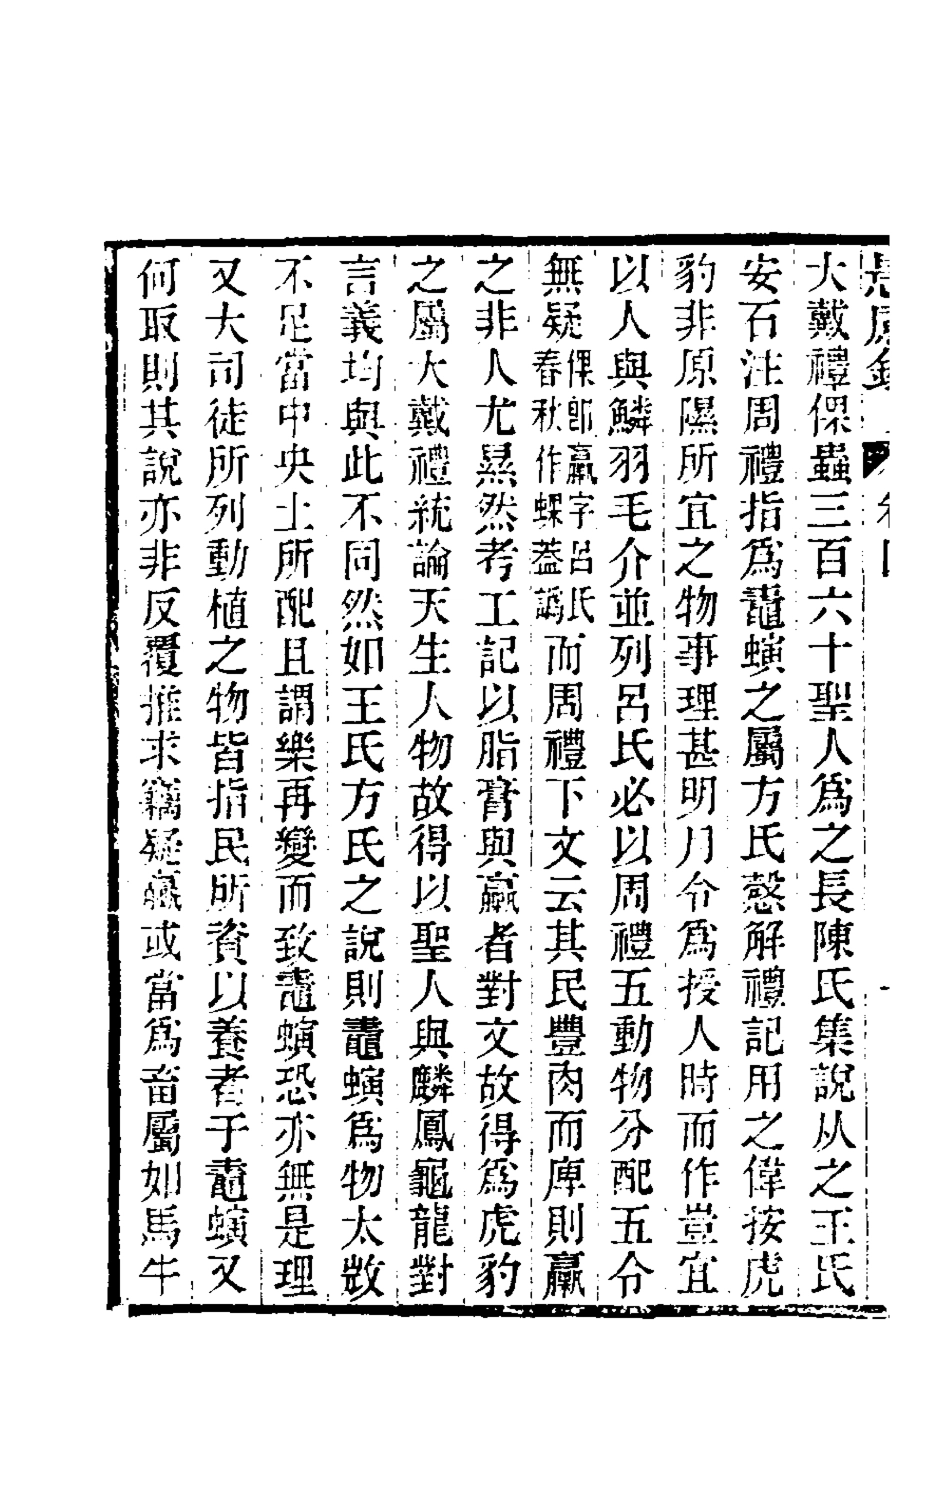 大戴禮倮蟲三百六十聖人爲之長陳氏集說从之王氏
安石注周禮指爲鼃螾之屬方氏慤解禮記用之偉按虎
豹非原隰所宜之物事理甚明月令爲授人時而作豈宜
以人與鱗羽毛介並列呂氏必以周禮五動物分配五令
無疑倮卽蠃字呂氏春秋作蜾蓋譌而周禮下文云其民豐肉而庳則蠃
之非人尤㬎然考工記以脂膏與蠃者對文故得爲虎豹
之屬大戴禮統論天生人物故得以聖人與麟鳳龜龍對
言義均與此不同然如王氏方氏之說則鼃螾爲物太㪚
不足當中央土所配且謂樂再變而致鼃螾恐亦無是理
又大司徒所列動植之物皆指民所資以養者于鼃螾又
何取則其說亦非反覆推求竊疑蠃或當爲畜屬如馬牛